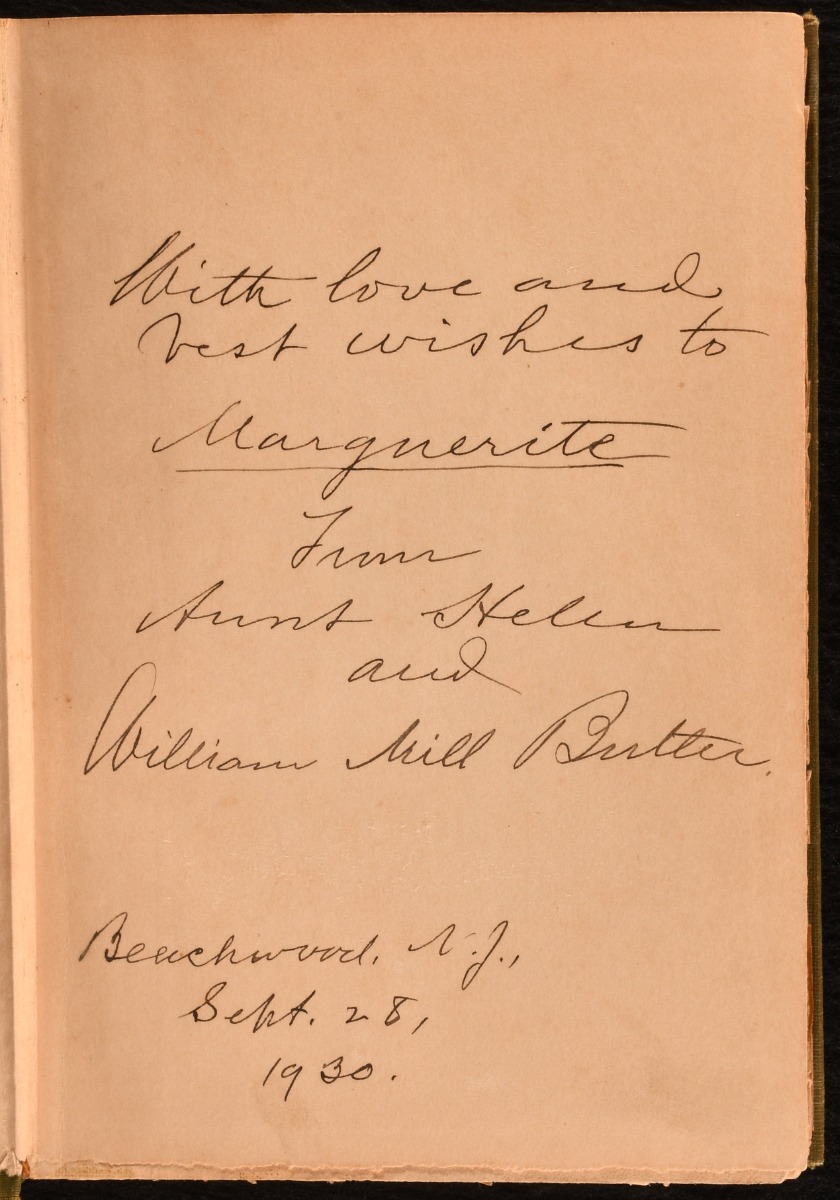 With love and
best wishes to
Marguerite
From
Aunt Helen
and
William Mill Butler.
Beachwood, N.J.,
Sept. 28,
1930.